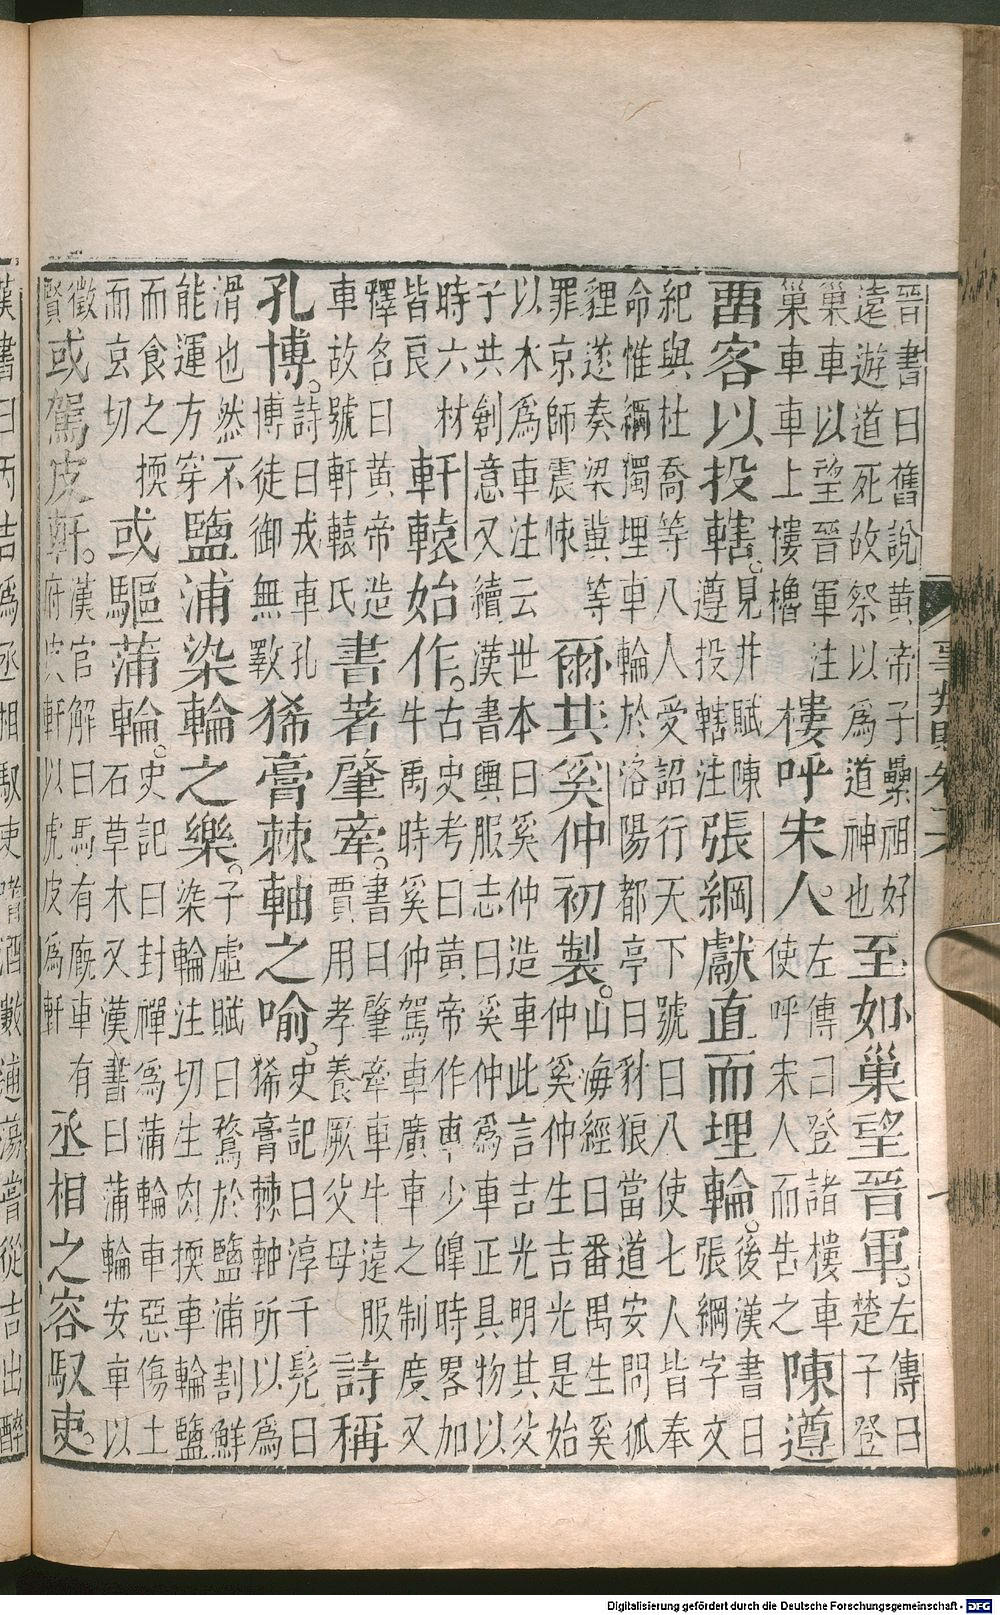 晉書曰舊說黃帝子纍祖好遠遊道死故祭以為道神也至如巢望晉軍。左傳曰楚子登
巢車以望晉軍注巢車車上樓櫓樓呼宋人。左傳曰登諸樓車使呼宋人而告之陳遵
畱客以投轄。見井賦陳遵投轄注張綱獻直而埋輪。後漢書曰張綱字文
紀與杜喬等八人受詔行天下號曰八使七人皆奉命惟綱獨埋車輪於洛陽都亭曰豺狼當道安問狐
貍遂奏梁冀等罪京師震悚爾其奚仲初製。山海經曰番禺生奚仲奚仲生吉光是始
以木為車注云世本曰奚仲造車此言吉光明其父子共創意又續漢書輿服志曰奚仲為車正具物以
時六材皆良軒轅始作。古史考曰黃帝作車少皥時畧加牛禹時奚仲駕車廣車之制廣又
釋名曰黃帝造車故號軒轅氏書著肇牽。書曰肇牽車牛遠服賈用孝養厥父母詩稱
孔博。詩曰戎車孔博徒御無斁狶膏棘軸之喻。史記曰淳于髡曰狶膏棘軸所以為
滑也然不能運方穿鹽浦染輪之樂。子虛賦曰鶩於鹽浦割鮮染輪注切生肉揳車輪鹽
而食之揳而玄切或驅蒲輪。史記曰封禪為蒲輪車惡傷土石草木又漢書曰蒲輪安車以
徵賢或駕皮軒。漢官解曰馬有廐車有府皮軒以虎皮為軒丞相之容馭吏。
漢書曰丙吉為丞相馭吏嗜酒數逋蕩嘗從吉出醉
Digitalisierung gefördert durch die Deutsche Forschungsgemeinschaft - DFG